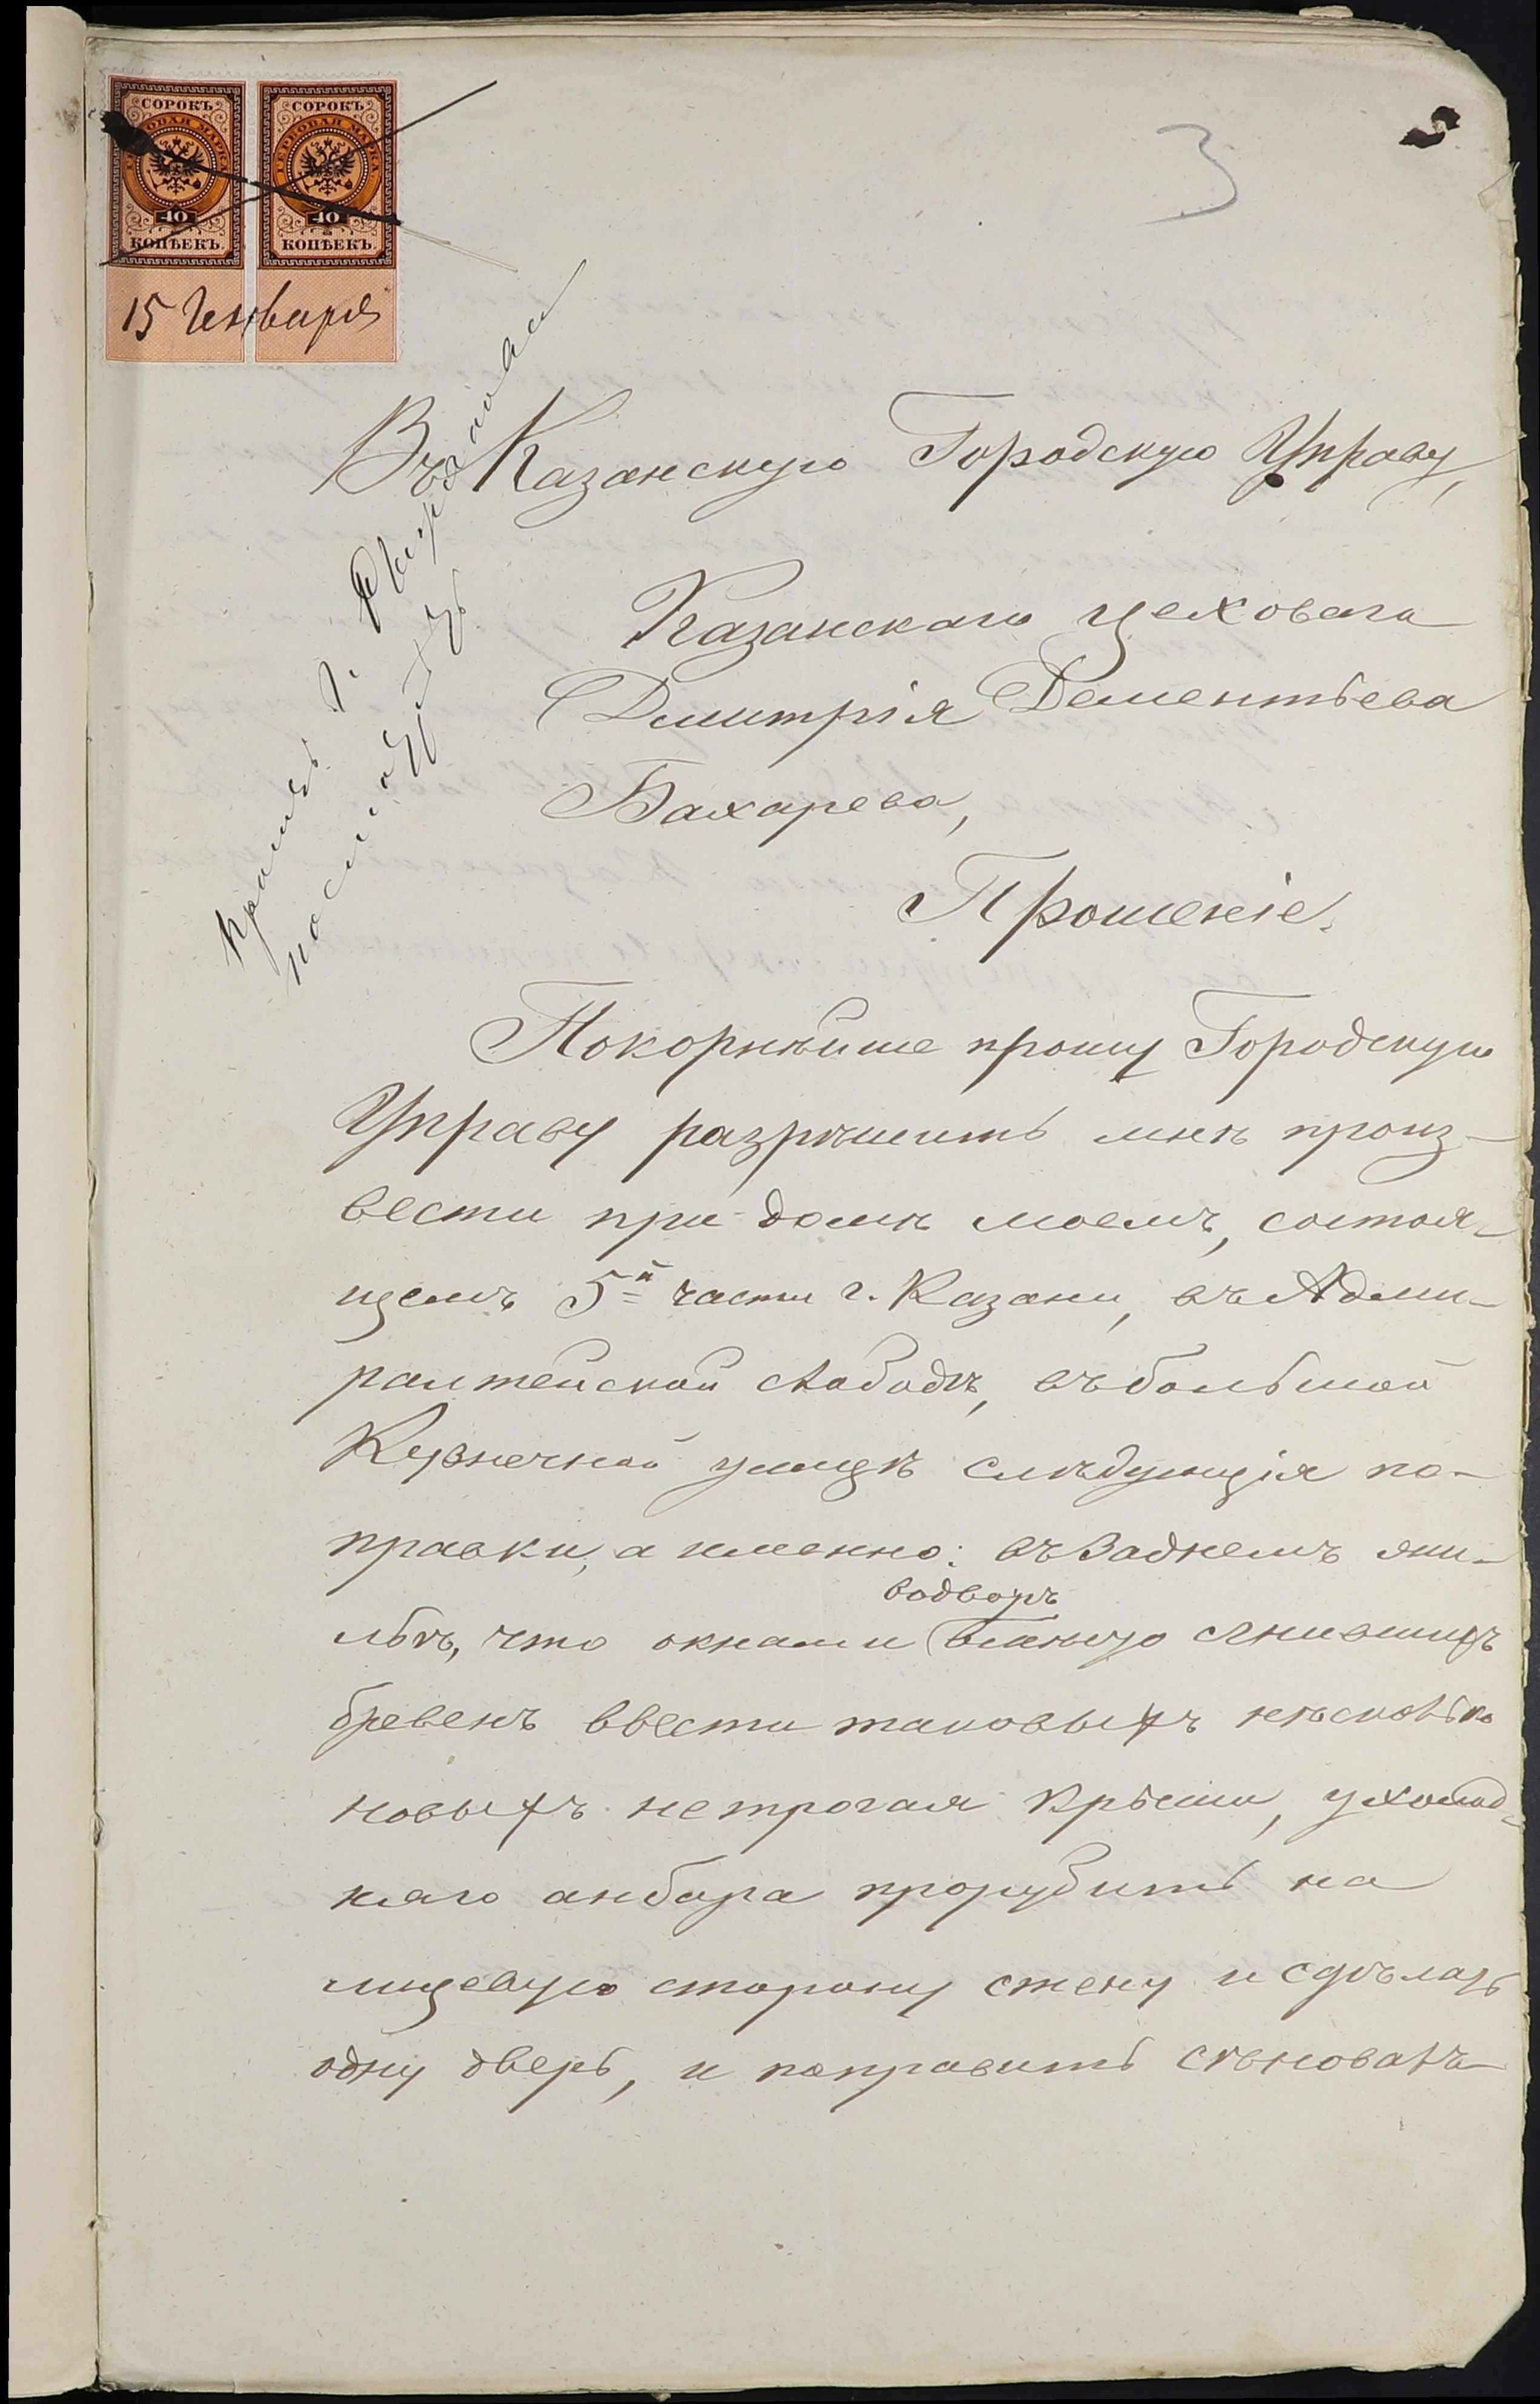 СОРОКЪ СОРОКЪ
ГЕРБОВАЯ МАРКА ГЕРБОВАЯ МАРКА
40 40
КОПѢЕКЪ. КОПѢЕКЪ.
15 Генваря
3
Въ Казанскую Городскую Управу,
Казанскаго цеховаго
Димитрія Дементьева
Бахарева,
Прошеніе.
Покорнѣйше прошу Городскую
Управу разрѣшить мнѣ произ-
вести при домѣ моемъ, состоя-
щемъ 5й части г. Казани, въ Адми-
ралтейской слободѣ, въ большой
Кузнечной улицѣ слѣдующія по-
правки, а именно: въ заднемъ жи-
льѣ, что окнами во дворъ вмѣсто сгнившихъ
бревенъ ввести таковыхъ нѣсколько
новыхъ не трогая крыши, у холод-
наго анбара прорубить на
лицевую сторону стену и сдѣлать
одну дверь, и поправить сѣновалъ